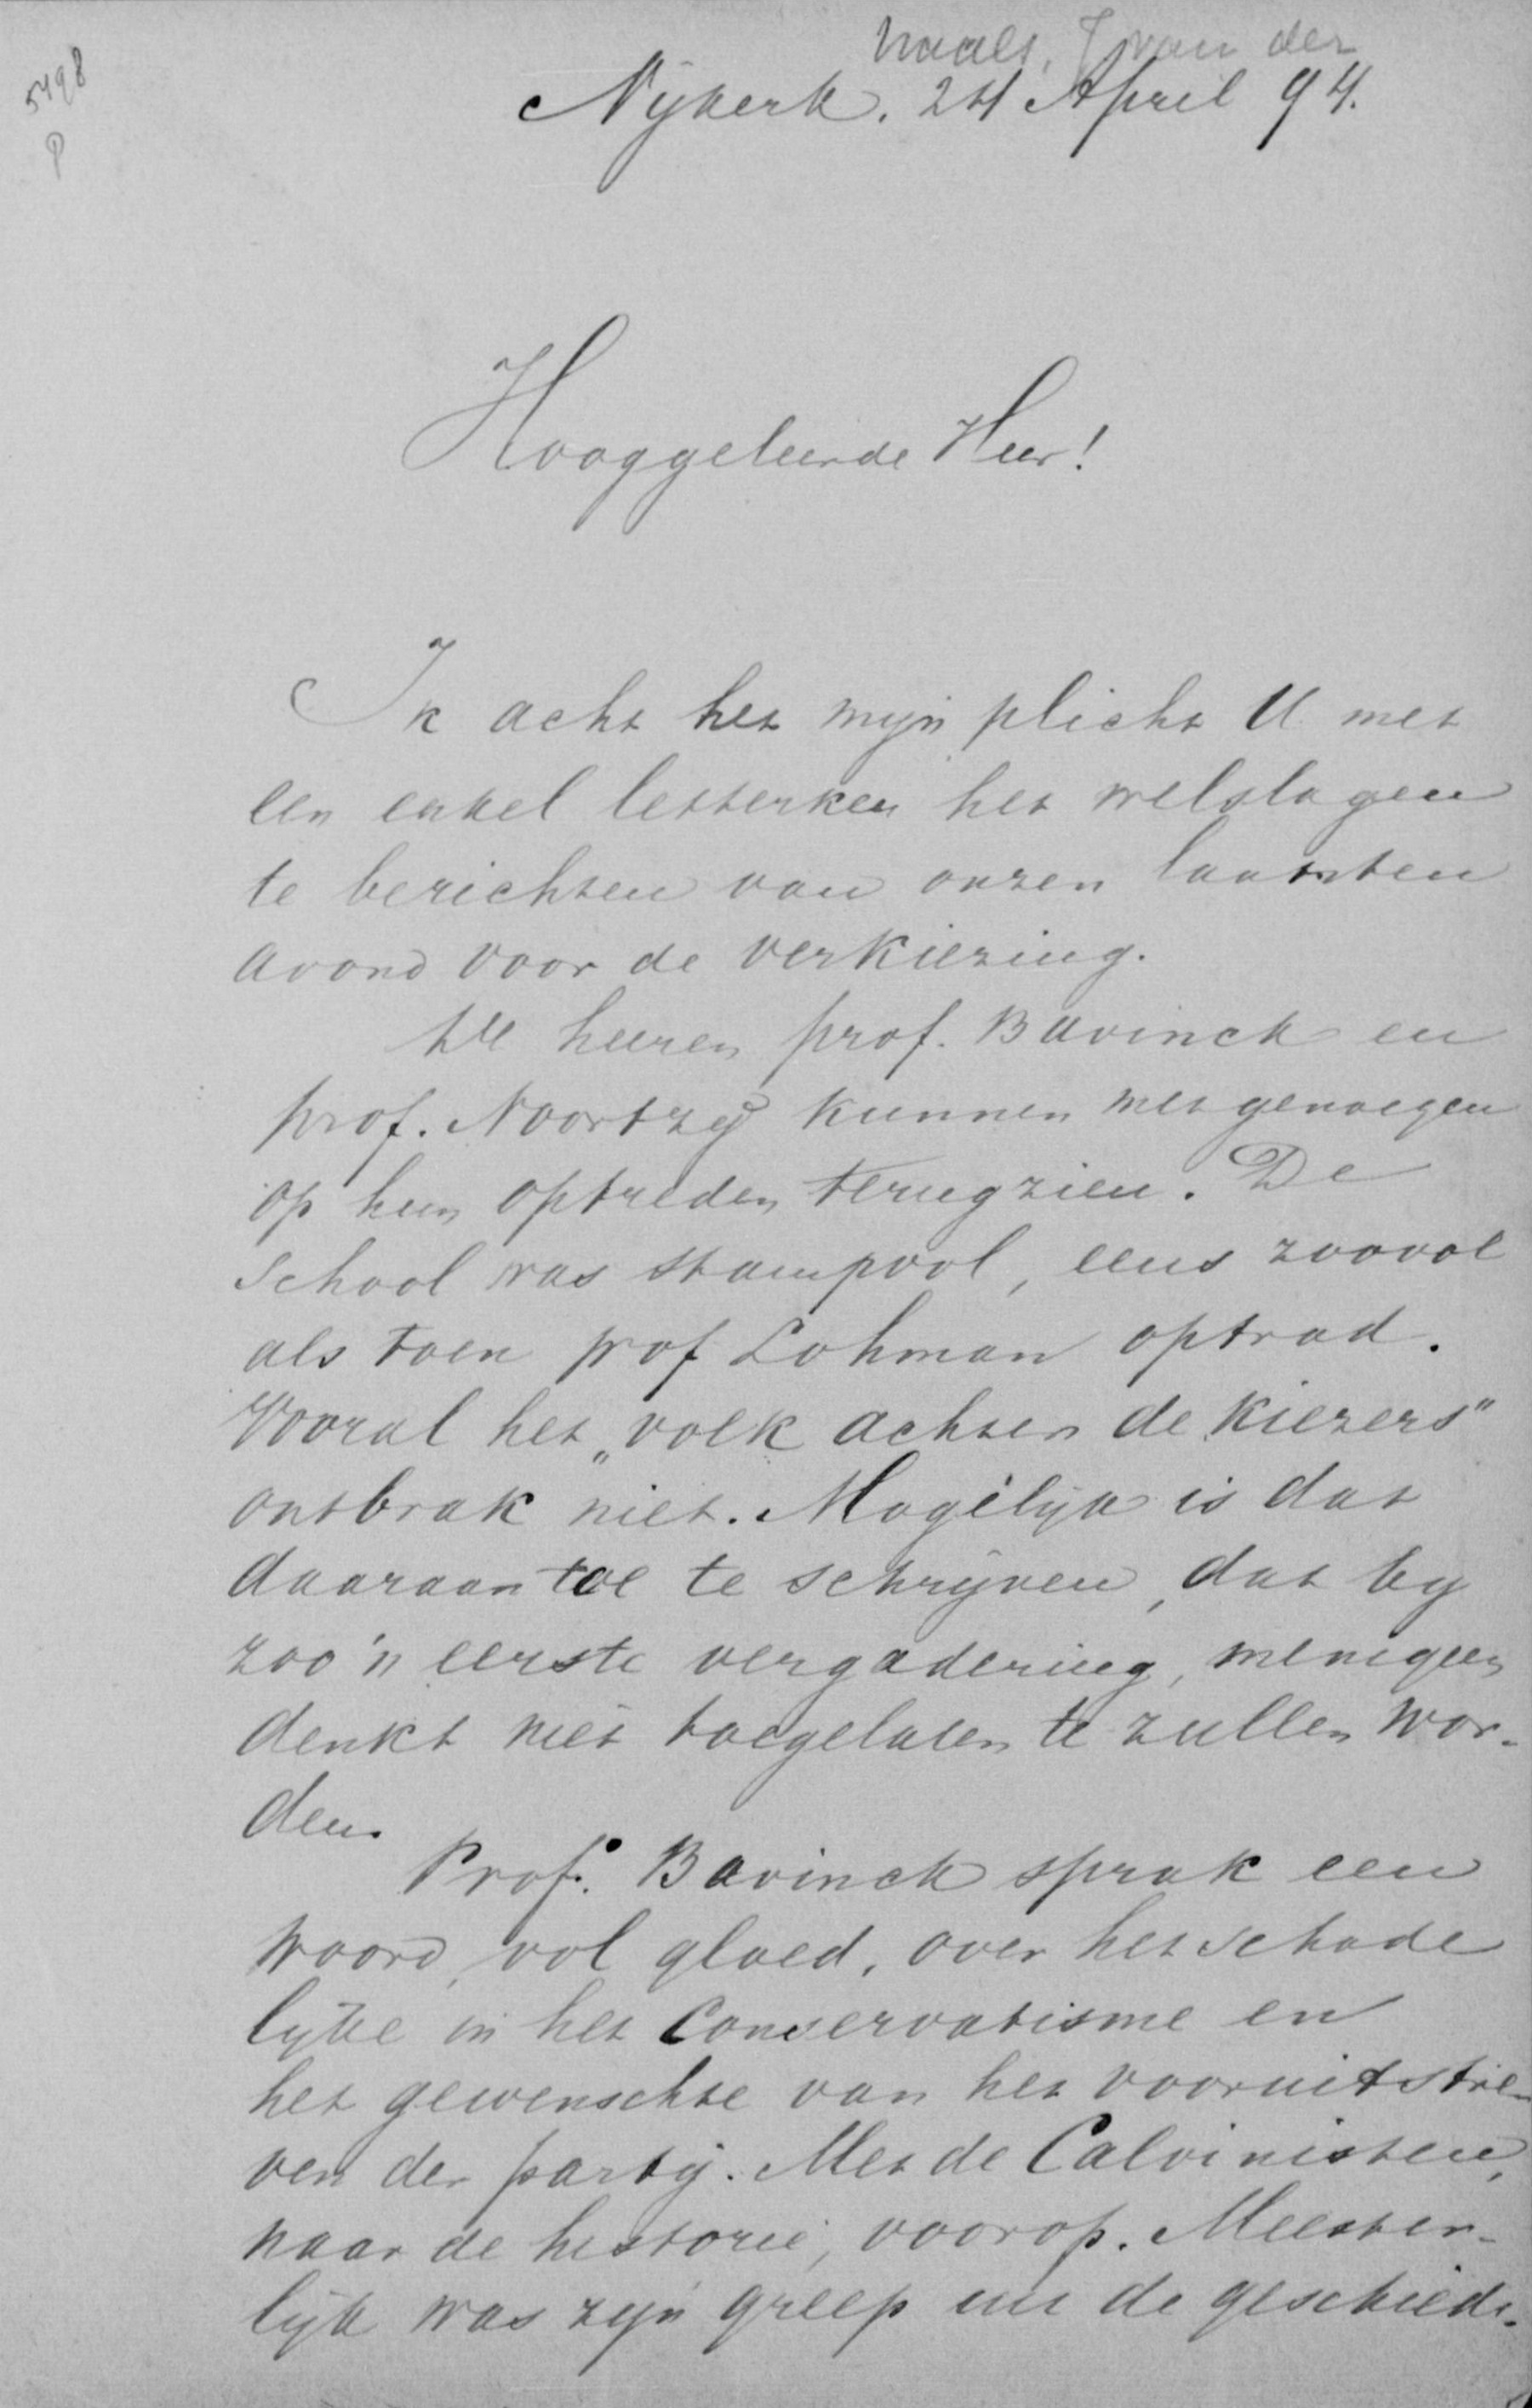 5498
P
van der
Nijkerk. 24 April 94.
Hooggeleerde Heer!
Ik acht het mijn plicht U met
een enkel letterken het welslagen
te berichten van onzen laatsten
avond voor de verkiezing.
De heeren prof. Bavinck en
prof. Noortzij kunnen met genoegen
op hun optreden terugzien. De
school was stampvol, eens zoovol
als toen prof Lohman optrad.
Vooral het „volk achter de kiezers"
ontbrak niet. Mogelijk is dat
daaraan toe te schrijven, dat bij
zoo'n eerste vergadering, menigeen
denkt niet toegelaten te zullen wor-
den.
Prof. Bavinck sprak een
woord, vol gloed, over het schade
lijke in het Conservatisme en
het gewenschte van het vooruitstre-
ven der partij. Met de Calvinisten,
naar de historie, voorop. Meester-
lijk was zijn greep uit de geschiede-